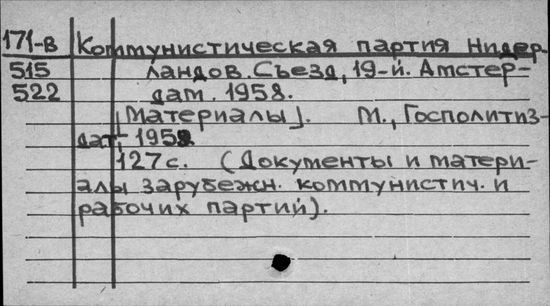 171-в Коммунистическая партия Нидер-
515 ландов. Съезд, 19-й. Амстер-
522 дам. 1958.
[Материалы]. М., Госполитиз-
дат, 1958.
127 с. (Документы и матери-
алы зарубежн. коммунистич. и
рабочих партий).